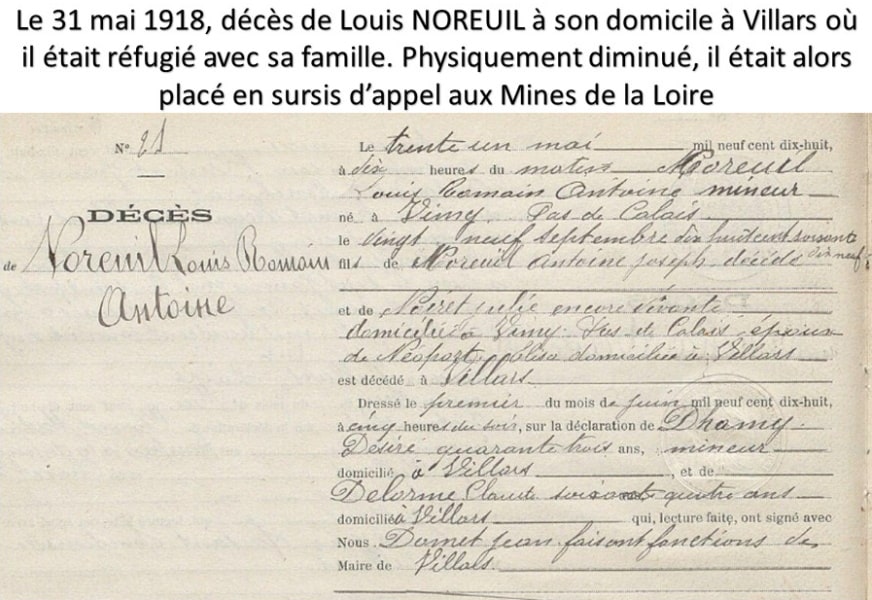 Le 31 mai 1918, décès de Louis NOREUIL à son domicile à Villars où
il était réfugié avec sa famille. Physiquement diminué, il était alors
placé en sursis d’appel aux Mines de la Loire
N° 21
DÉCÈS
de Noreuil Louis Romain
Antoine
Le trente un mai mil neuf cent dix-huit,
à dix heures du matin Noreuil
Louis Romain Antoine mineur
né à Vimy Pas de Calais
le vingt neuf septembre dix huit cent soixante
dix neuf
fils de Noreuil Antoine Joseph décédé
et de julie encore vivante
domiciliée à Vimy Pas de Calais époux
de Élisa domiciliée à Villars
est décédé à Villars
Dressé le premier du mois de juin mil neuf cent dix-huit,
à cinq heures du soir, sur la déclaration de Dhamy
Désiré quarante trois ans, mineur
domicilié à Villars, et de
Delorme Claude soixante quatre ans
domicilié à Villars qui, lecture faite, ont signé avec
Nous Domet jean faisant fonctions de
Maire de Villars